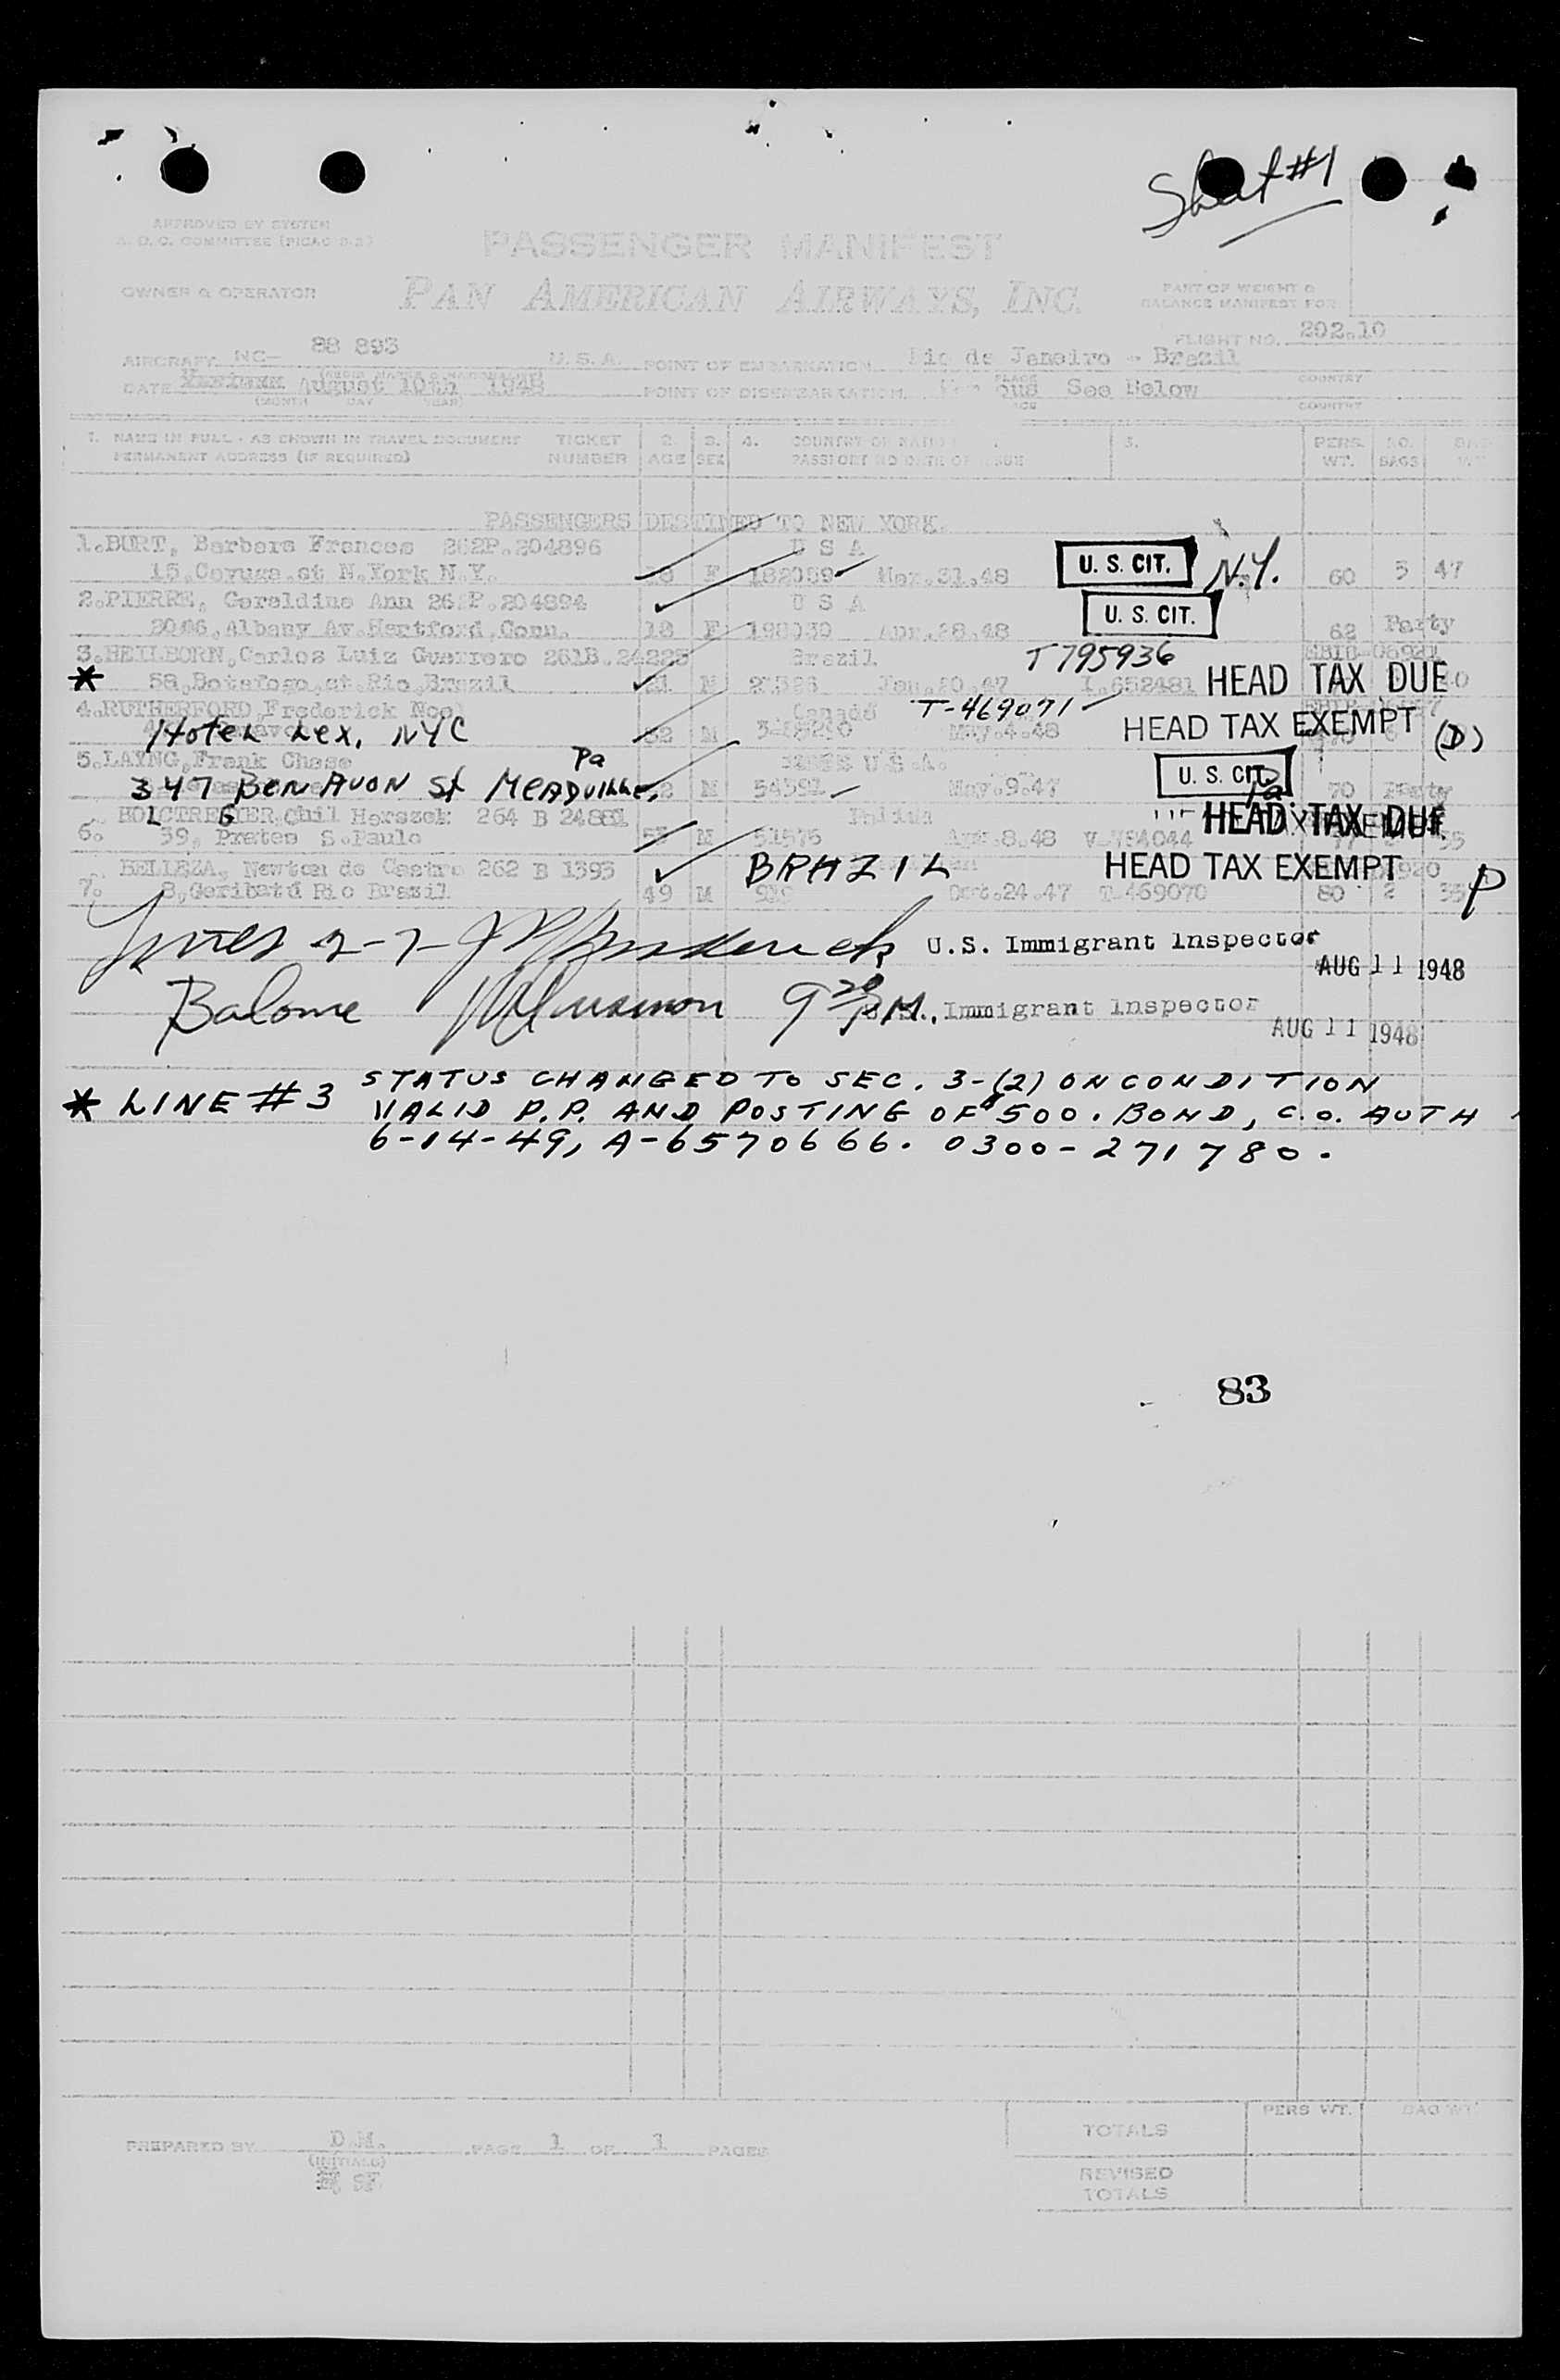 Sheet #1
APPROVED BY SYSTEM
A. O. C. COMMITTEE (PICAO 9-2)
PASSENGER MANIFEST
OWNER & OPERATOR
PAN AMERICAN AIRWAYS, INC.
PART OF WEIGHT &
BALANCE MANIFEST FOR
FLIGHT NO. 202.10
AIRCRAFT NC- 88 893 U.S.A. POINT OF EMBARKATION Rio de Janeiro - Brazil
PLACE COUNTRY
DATE August 10th 1948 POINT OF DISEMBARKATION See Below
(MONTH DAY YEAR) COUNTRY
1. NAME IN FULL - AS SHOWN IN TRAVEL DOCUMENT TICKET 2. 3. 4. COUNTRY OF 5. PERS. NO.
PERMANENT ADDRESS (IF REQUIRED) NUMBER AGE SEX PASSPORT NO DATE OF WT. BAGS
PASSENGERS DESTINED TO NEW YORK.
1.BURT, Barbara Frances 262P.204896 U S A
15.Cayuga.st N.York N.Y. F 182059 Mar.31.48 U. S. CIT. N.Y. 60 5 47
2.PIERRE, Geraldine Ann P.204894 U S A
2046,Albany Av.Hartford,Conn. 18 F 198030 Apr.28.48 U. S. CIT. 62 Party
3.HEILBORN,Carlos Luiz Guerrero 261B.24225 Brazil T 795936
* 58,Botafogo,st.Rio,Brazil 21 M Jan.20.47 I.652481 HEAD TAX DUE
4.RUTHERFORD,Frederick Noel Canada T-469071
Hotel Lex, NYC 32 M May.4.48 HEAD TAX EXEMPT (D)
5.LAYNG,Frank Chase Pa U.S.A.
347 Ben Avon St Meadville, M 54391 May.9.47 U. S. CIT. Pa 70 Party
Chil Herszek 264 B 24881
6. 39, Prates S.Paulo M 51575 Apr.8.48 HEAD TAX DUE
BELLEZA, Newton de Castro 262 B 1393 BRAZIL HEAD TAX EXEMPT
7. 8,Geribatú Rio Brasil 49 M Oct.24.47 T-469070 80 2 P
U.S. Immigrant Inspector
AUG 11 1948
Immigrant Inspector
AUG 11 1948
* LINE #3 STATUS CHANGED TO SEC. 3-(2) ON CONDITION
VALID P.P. AND POSTING OF $500. BOND, C.O. AUTH
6-14-49, A-6570666. 0300-271780.
83
PREPARED BY D.M. PAGE 1 OF 1 PAGES
(INITIALS)
PERS WT. BAG WT.
TOTALS
REVISED
TOTALS